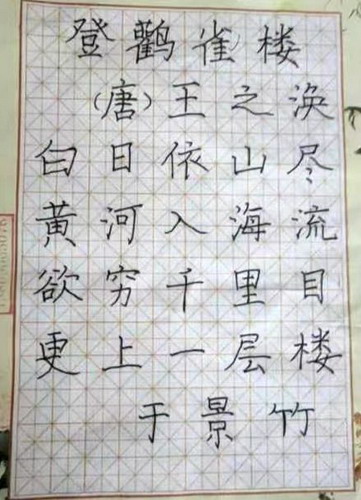 登鸛雀楼
(唐)王之涣
白日依山尽
黄河入海流
欲穷千里目
更上一层楼
于景竹